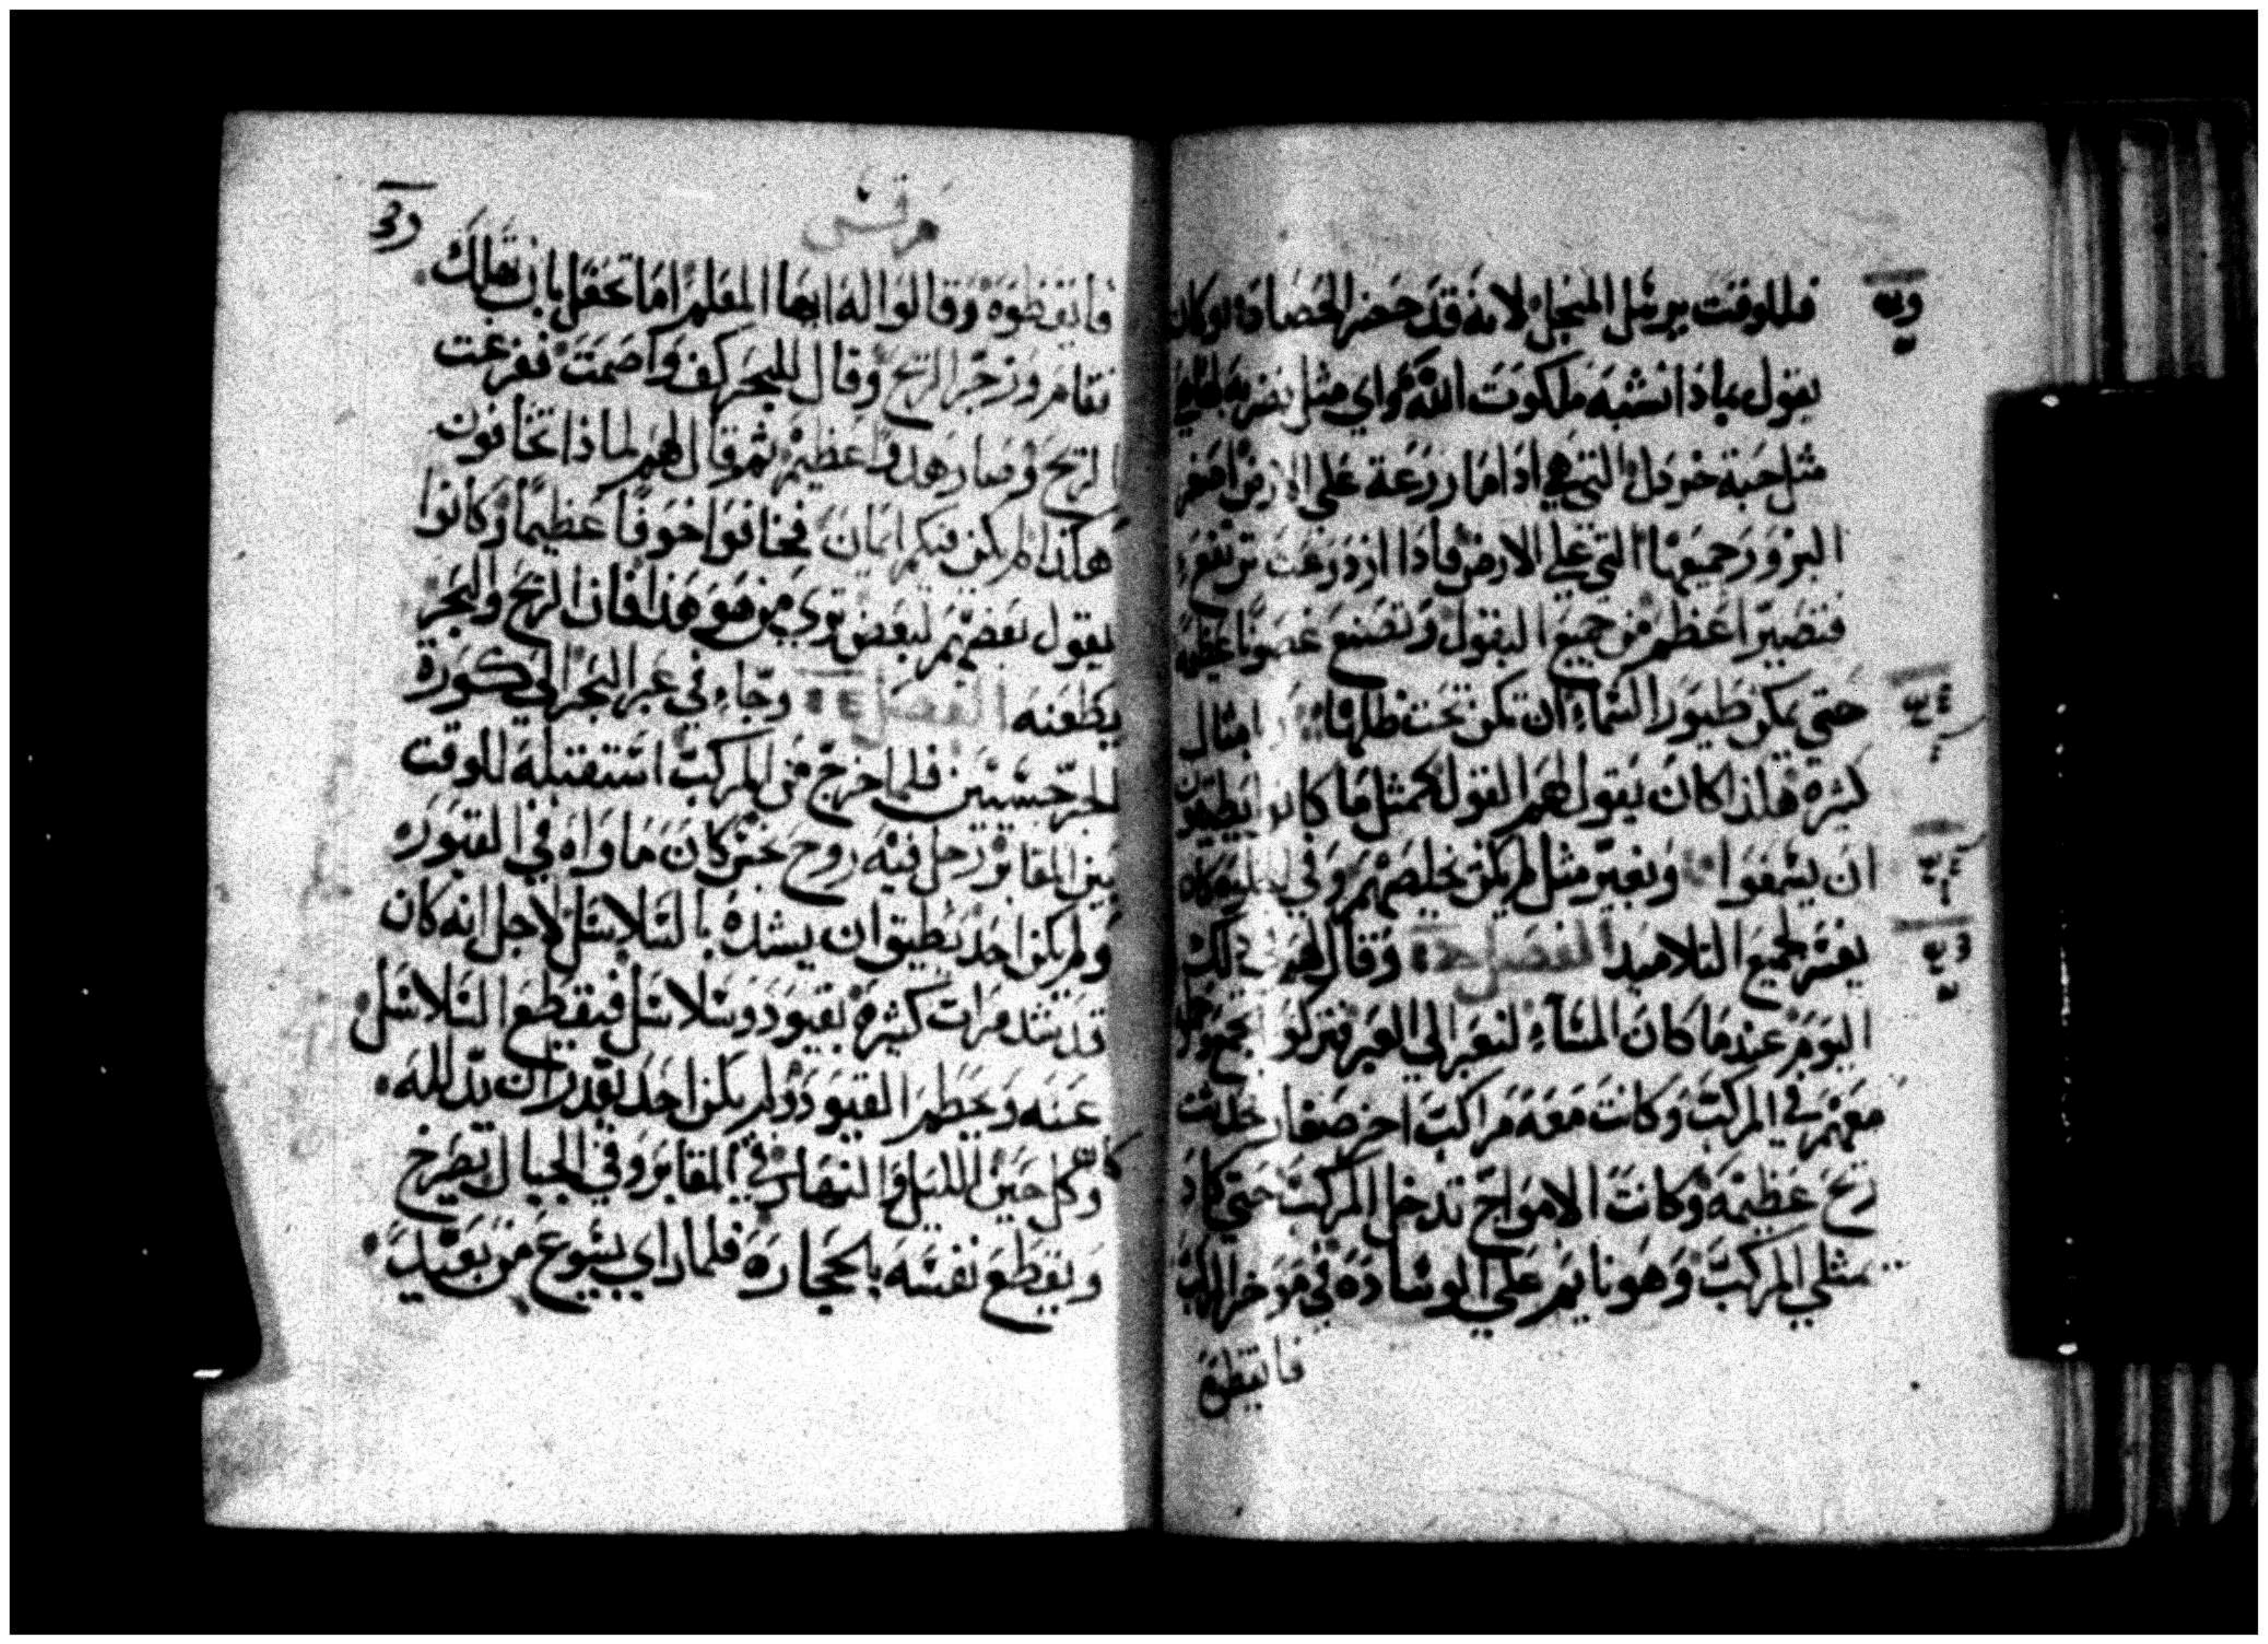 فللوقت يرسل المنجل لانه قد حضر الحصاد وكان
يقول بماذا نشبه ملكوت الله واي مثل
مثل حبة خردل التي هي اذا ما زرعة على الارض اصغر
البزور جميعها التي على الارض فاذا ازدرعت ترتفع
فتصير اعظم من جميع البقول وتصنع غصونا عظيمه
حتي يمكن طيور السماء ان تكن تحت ظلها امثال
كثيره هكذا كان يقول لهم القول كمثل ما كانو يطيقون
ان يسمعوا وبغير مثل لم يكن يخاطبهم وفي
يفسر لجميع التلاميد الفصل وقال لهم في ذلك
اليوم عند ما كان المساء لنعبر الي العبر فتركو الجمع
معهم في المركب وكانت معه مراكب اخر صغار حدثت
ريح عظيمه وكانت الامواج تدخل المركب حتي كاد
يمتلي المركب وهو نايم علي الوساده في موخر المركب
فايقظوه
مرقس
فايقظوه وقالوا له ايها المعلم اما تحفل بان نهلك
فقام وزجر الريح وقال للبحر كف واصمت ففرغت
الريح وصار هدوا عظيم ثم قال لهم لماذا تخافون
هكذا لم يكن فيكم ايمان فخافوا خوفا عظيما وكانوا
يقول بعضهم لبعض تري من هو هذا فان الريح والبحر
يطعنه الفصل ١٤ وجاء في عبر البحر الي كورة
الجرجسيين فلما خرج من المركب استقبله للوقت
من المقابر رجل فيه روح نجس كان ماواه في القبور
ولم يكن احد يطيق ان يشده بالسلاسل لاجل انه كان
قد شد مرات كثيره بقيود وسلاسل فيقطع السلاسل
عنه ويحطم القيود ولم يكن احد يقدر ان يدلله
وكل حين الليل والنهار في المقابر وفي الجبال يصرخ
ويقطع نفسه بالحجاره فلما راي يسوع من بعيد